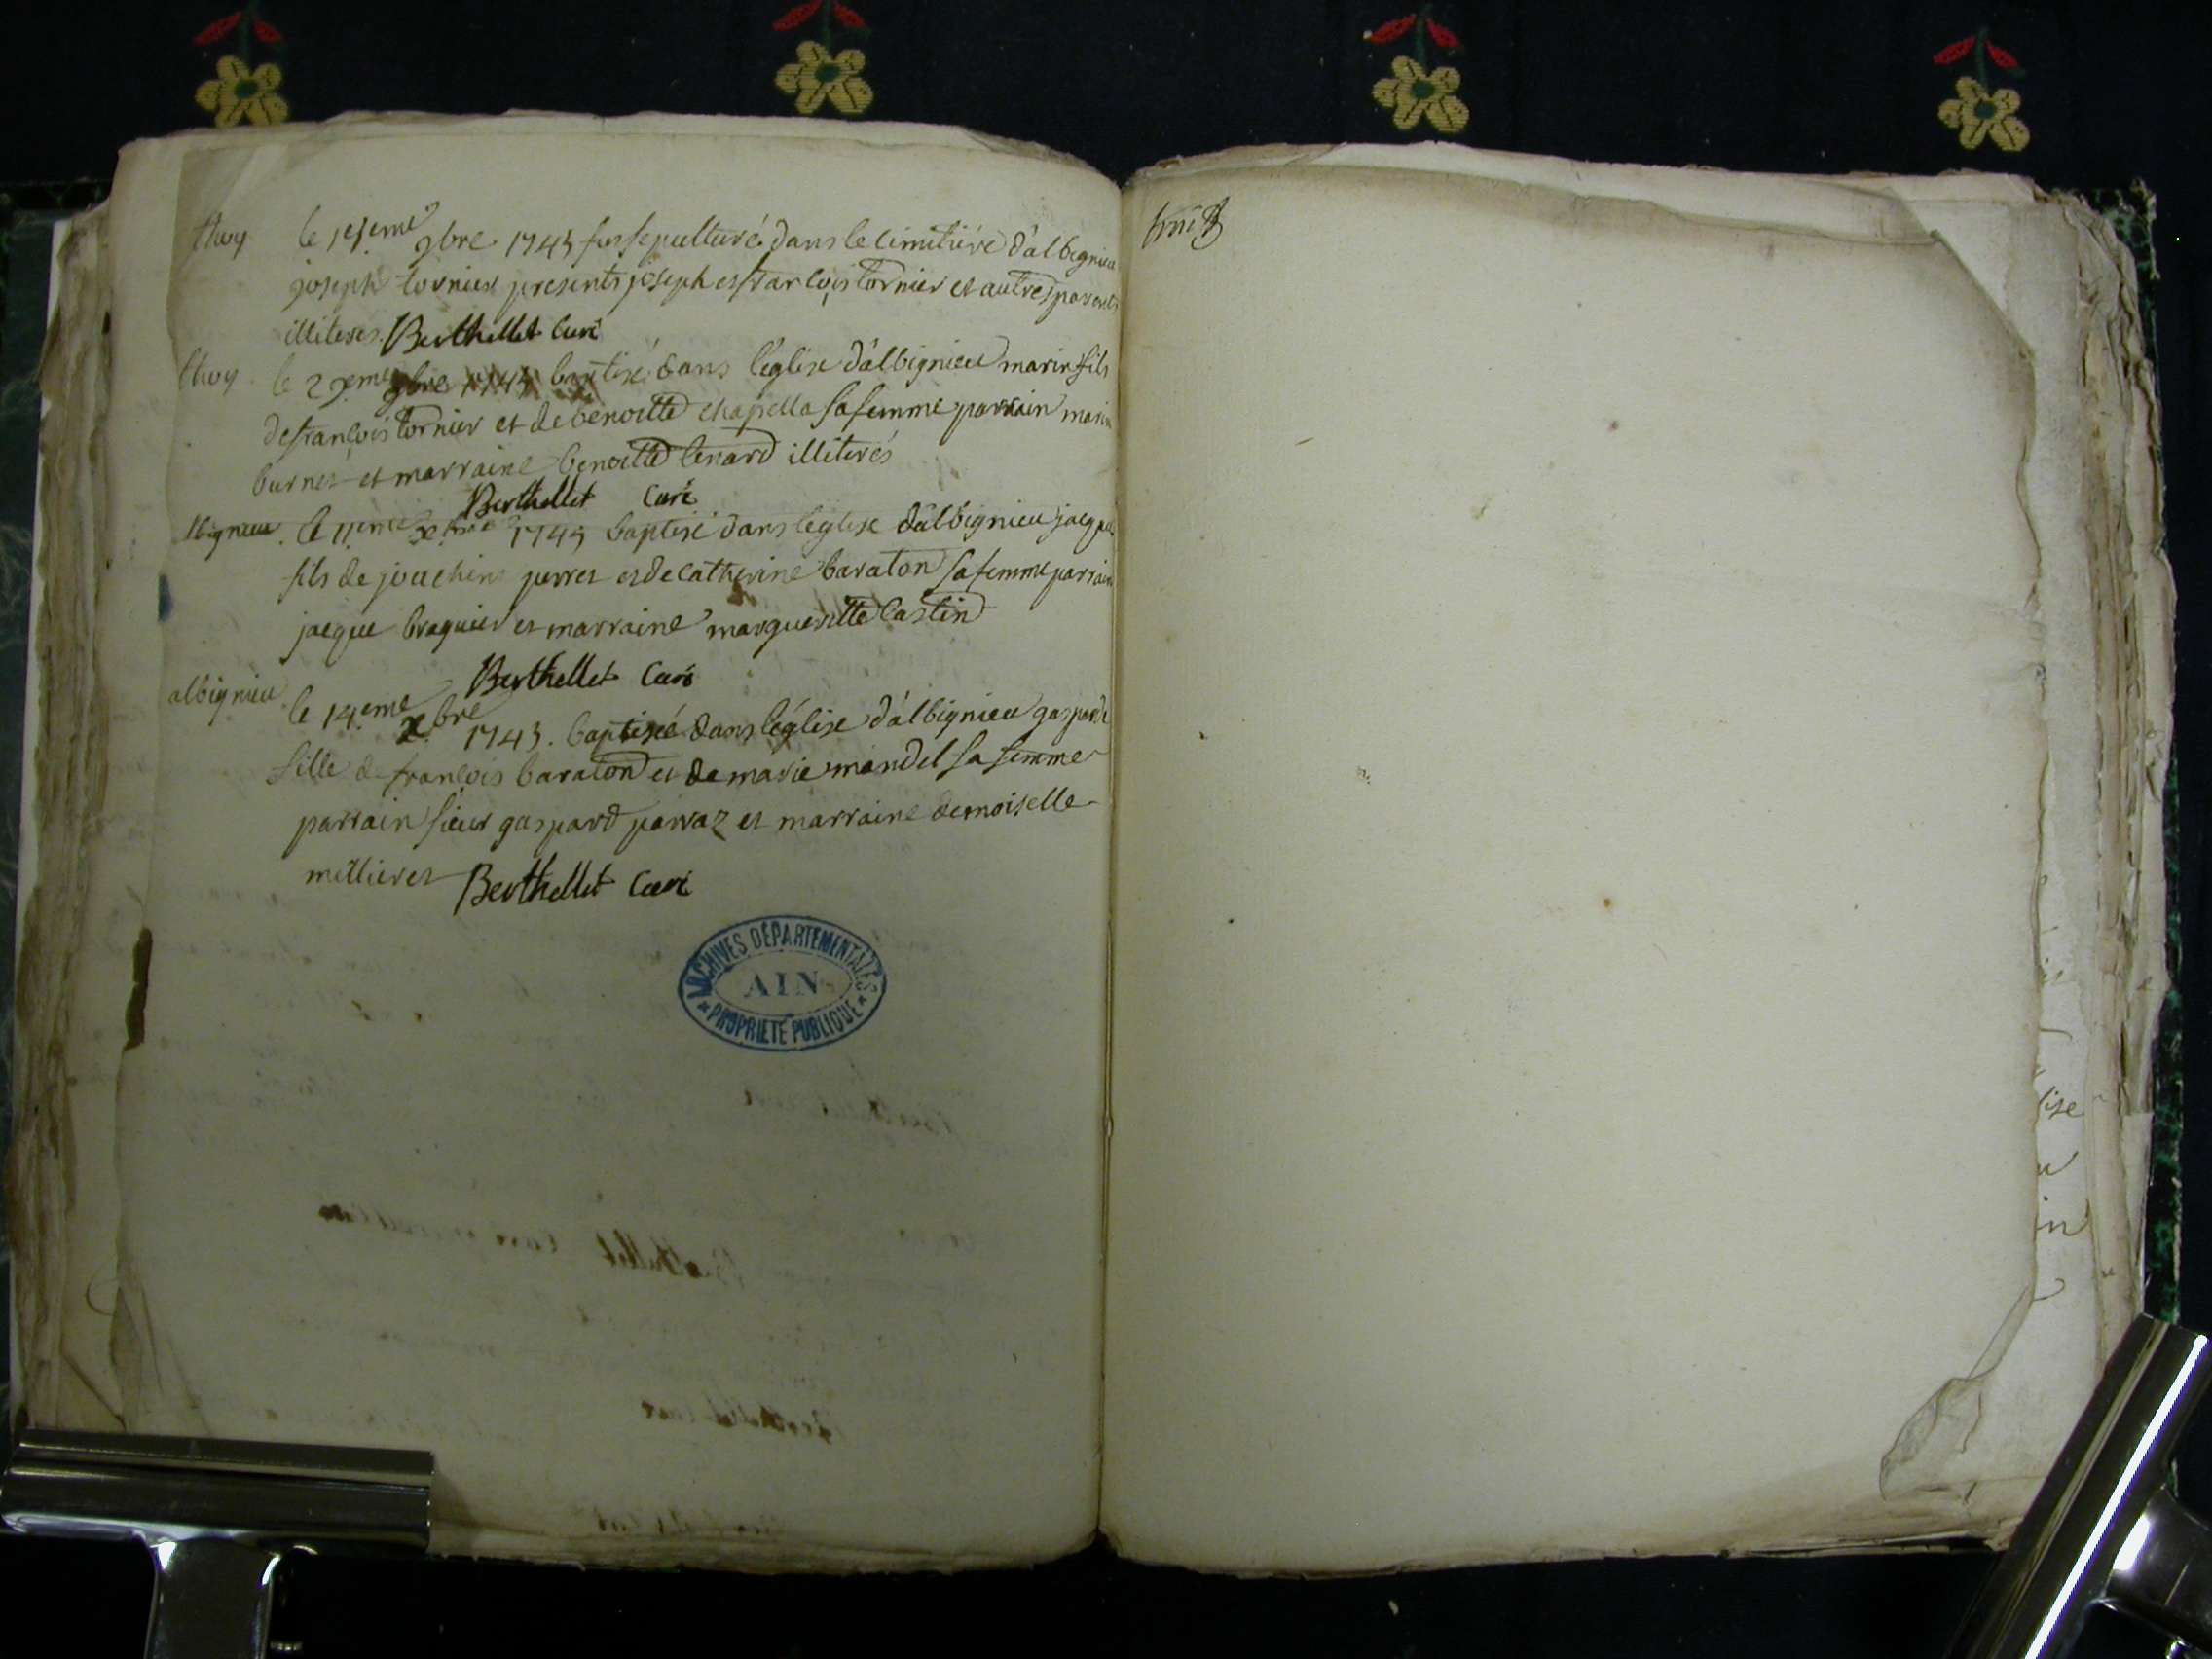 thuy le 15eme 9bre 1743 fut sepulturé dans le cimitiére d'albignieu
joseph tornier presents joseph et francois tornier et autres parents
illiteres. Berthellet Curé
thuy le 29eme 9bre 1743 baptisé dans l'église d'albignieu marin fils
de françois tornier et de benoitte chapella sa femme parrain marin
burnet et marraine benoitte benard illiterés
Berthellet Curé
lbignieu. le 11eme xbre 1743 baptisé dans l'église d'albignieu jacque
fils de jouachim perret et de catherine baraton sa femme parrain
jacque braquier et marraine margueritte Castin
Berthellet Curé
albignieu le 14eme xbre 1743. baptisée dans l'église d'albignieu gasparde
fille de françois baraton et de marie mandel sa femme
parrain sieur gaspard parraz et marraine demoiselle
millieret Berthellet Curé
ARCHIVES DÉPARTEMENTALES
AIN
* PROPRIÉTÉ PUBLIQUE *
lise
in